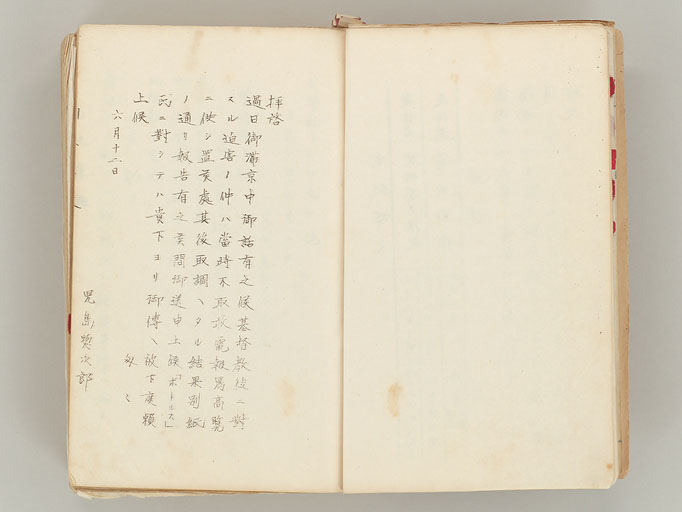 拝啓
過日御滞京中御話有之候基督教徒ニ對
スル迫害ノ件ハ當時不取敢電報写高覧
ニ供シ置候處其後取調ヘタル結果別紙
ノ通リ報告有之候間御送申上候「ボートルス」
氏ニ對シテハ貴下ヨリ御傳ヘ被下度頼
上候
敬具
六月十二日
児島惣次郎